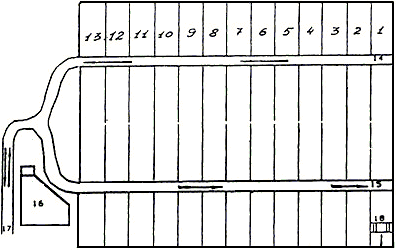 13 12 11 10 9 8 7 6 5 4 3 2 1
14
15
16
17
18